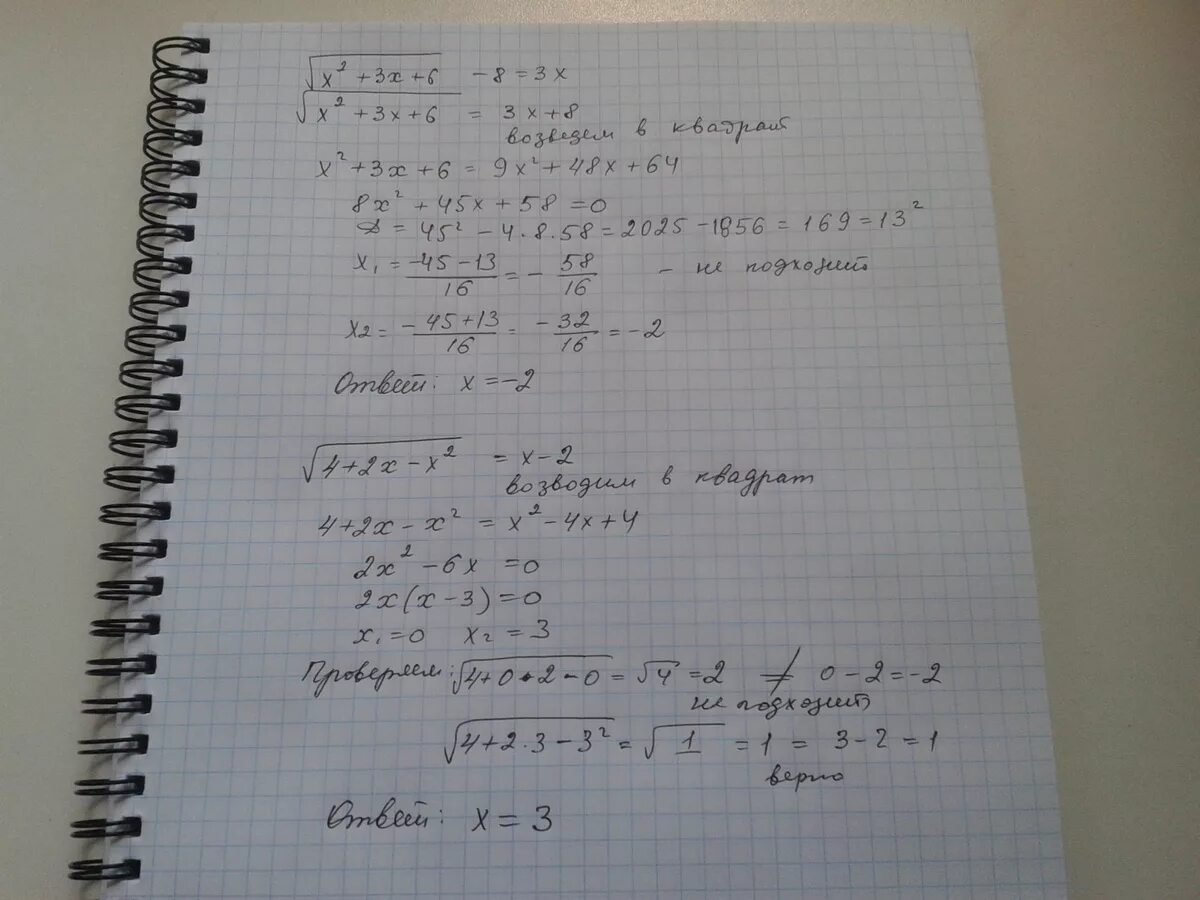 √(x² + 3x + 6) - 8 = 3x
√(x² + 3x + 6) = 3x + 8
возведем в квадрат
x² + 3x + 6 = 9x² + 48x + 64
8x² + 45x + 58 = 0
D = 45² - 4·8·58 = 2025 - 1856 = 169 = 13²
x₁ = (-45 - 13)/16 = - 58/16 - не подходит
x₂ = (-45 + 13)/16 = -32/16 = -2
Ответ: x = -2
√(4 + 2x - x²) = x - 2
возводим в квадрат
4 + 2x - x² = x² - 4x + 4
2x² - 6x = 0
2x(x - 3) = 0
x₁ = 0 x₂ = 3
Проверяем: √(4 + 0·2 - 0) = √4 = 2 ≠ 0 - 2 = -2
не подходит
√(4 + 2·3 - 3²) = √1 = 1 = 3 - 2 = 1
верно
Ответ: x = 3